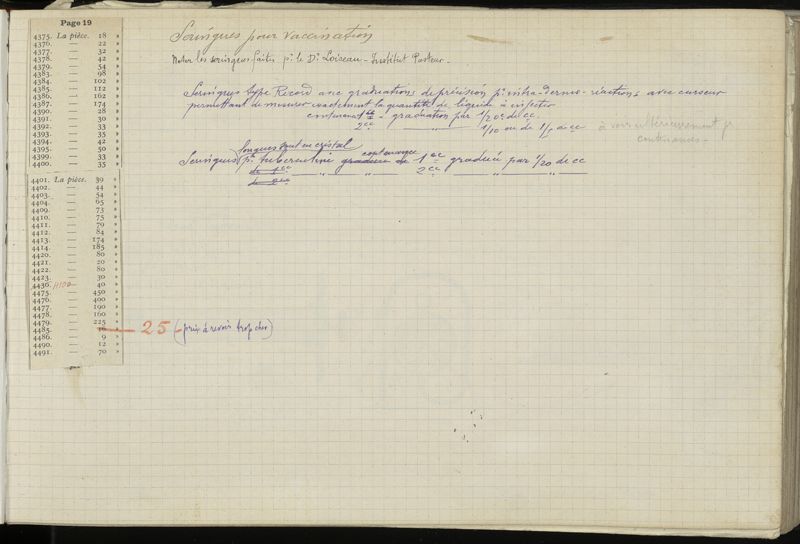 Page 19
4375. La pièce. 18 »
4376. — 22 »
4377. — 32 »
4378. — 42 »
4379. — 54 »
4383. — 98 »
4384. — 102 »
4385. — 112 »
4386. — 162 »
4387. — 174 »
4390. — 28 »
4391. — 30 »
4392. — 33 »
4393. — 35 »
4394. — 42 »
4395. — 50 »
4399. — 33 »
4400. — 35 »
4401. La pièce. 39 »
4402. — 44 »
4403. — 54 »
4404. — 65 »
4409. — 73 »
4410. — 75 »
4411. — 79 »
4412. — 84 »
4413. — 174 »
4414. — 185 »
4420. — 80 »
4421. — 20 »
4422. — 80 »
4423. — 30 »
4436. — 40 »
4475. — 450 »
4476. — 400 »
4477. — 190 »
4478. — 160 »
4479. — 225 »
4485. »
4486. — 9 »
4490. — 12 »
4491. — 70 »
25 (prix à revoir trop cher)
Seringues pour vaccination
Noter les seringues faites pr. le Dr Loiseau - Institut Pasteur.
Seringues type Record avec graduations de précision pr intra-dermo-réactions avec curseur
permettant de mesurer exactement la quantité de liquide à injecter
contenance 1cc - graduation par 1/20e de cc.
2cc — „ — 1/10 ou de cc
à voir ultérieurement pr
contenances.
longues tout en cristal
Seringues pr. tuberculine graduée de contenance 1cc graduée par 1/20 de cc
de 1cc — „ — 2cc — „ —
de 2cc